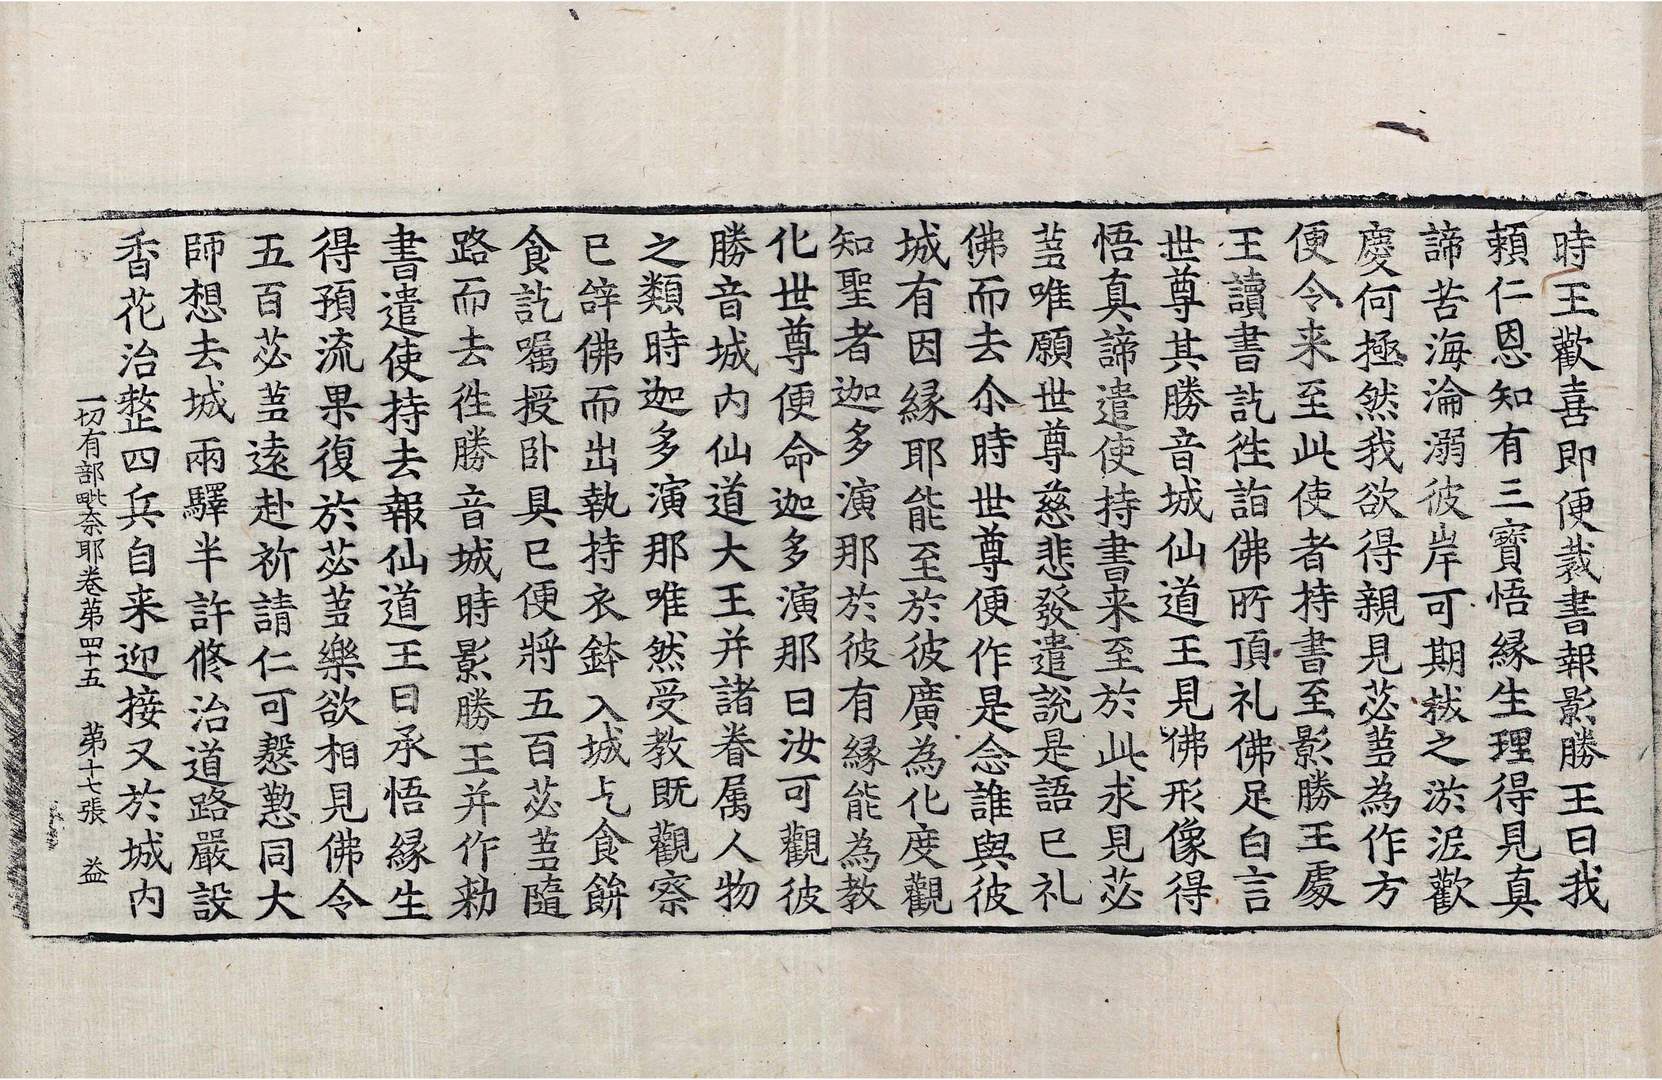 時王歡喜即便裁書報影勝王曰我
頼仁恩知有三寶悟縁生理得見真
諦苦海淪溺彼岸可期拔之淤泥歡
慶何極然我欲得親見苾蒭為作方
便令来至此使者持書至影勝王處
王讀書訖徃詣佛所頂礼佛足白言
世尊其勝音城仙道王見佛形像得
悟真諦遣使持書来至於此求見苾
蒭唯願世尊慈悲發遣說是語已礼
佛而去尒時世尊便作是念誰與彼
城有因縁耶能至於彼廣為化度觀
知聖者迦多演那於彼有縁能為教
化世尊便命迦多演那曰汝可觀彼
勝音城内仙道大王并諸眷属人物
之類時迦多演那唯然受教既觀察
已辝佛而出執持衣鉢入城乞食餅
食訖囑授卧具已便將五百苾蒭隨
路而去徃勝音城時影勝王并作勑
書遣使持去報仙道王曰承悟縁生
得預流果復於苾蒭樂欲相見佛令
五百苾蒭遠赴祈請仁可慇懃同大
師想去城兩驛半許修治道路嚴設
香花治整四兵自来迎接又於城内
一切有部毗奈耶卷第四十五 第十七張 益